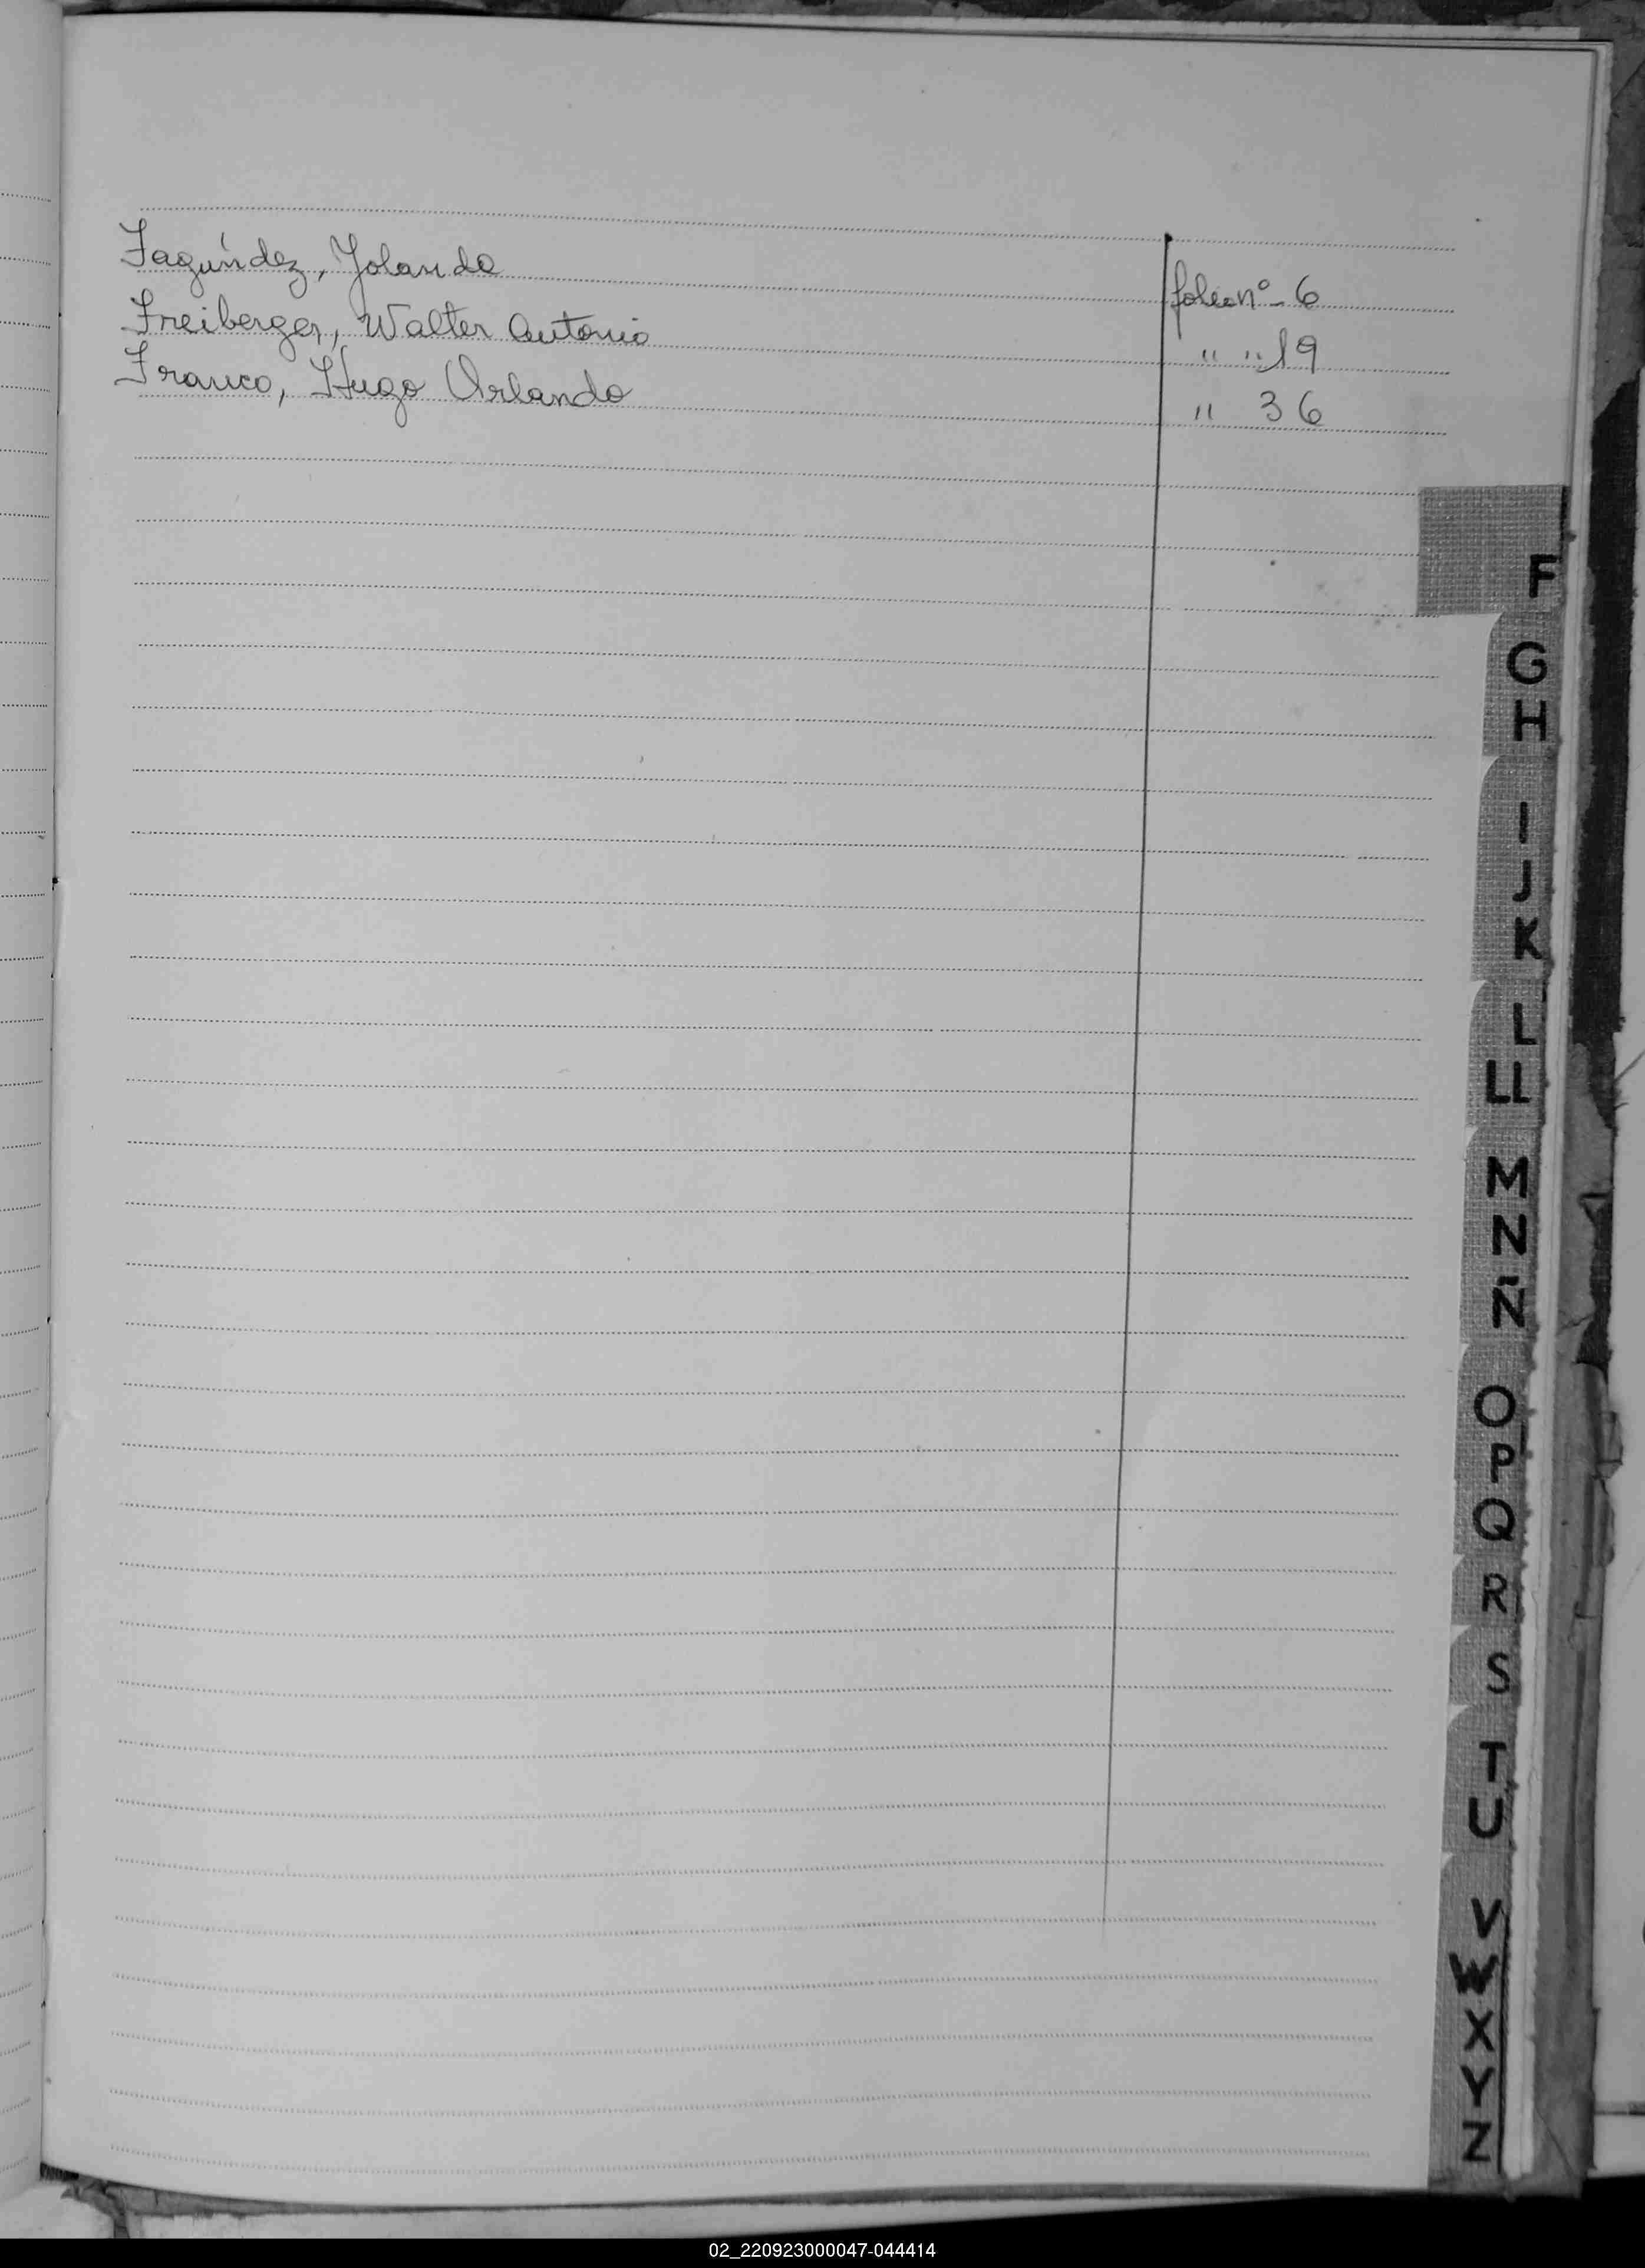 Fagúndez, Yolanda folio nº- 6
Freiberger, Walter Antonio " " 19
Franco, Hugo Orlando " 36
F
G
H
I
J
K
L
LL
M
N
Ñ
O
P
Q
R
S
T
U
V
W
X
Y
Z
02_220923000047-044414